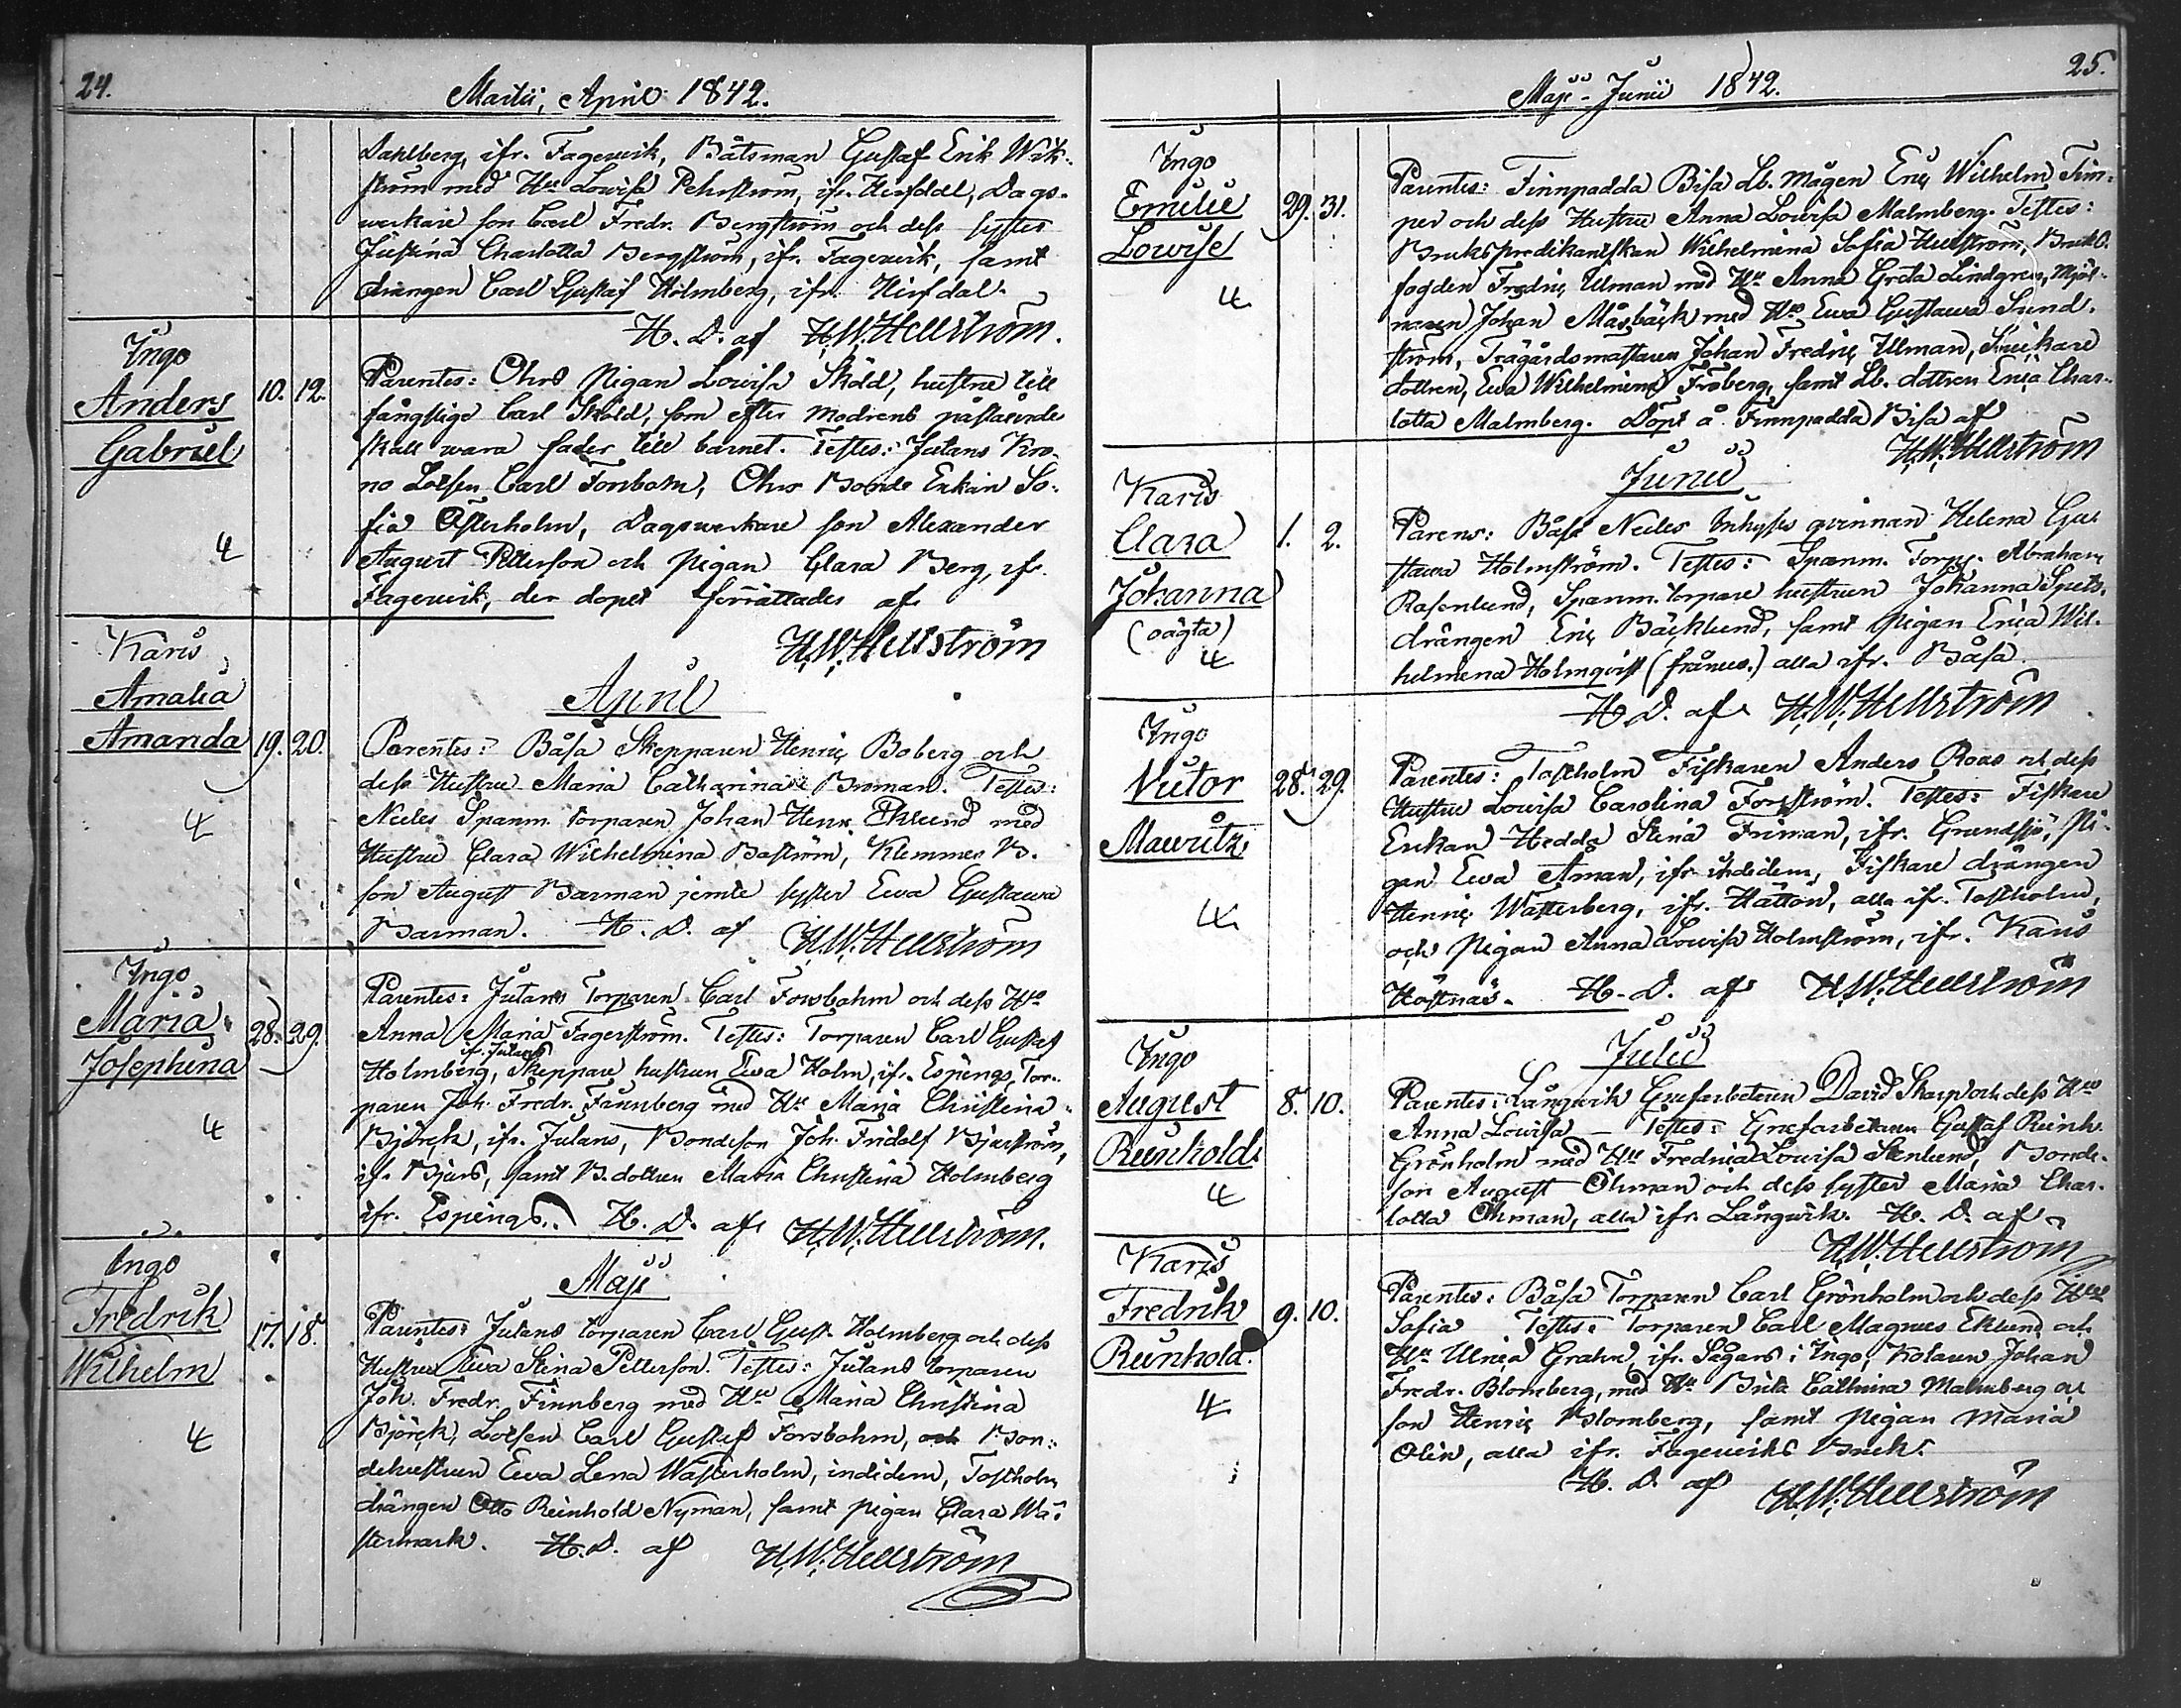 24.
Martii, April 1842.
Dahlberg, ifr. Fagervik, Båtsman Gustaf Erik Wik-
ström med H:u Lovisa Pehrström, ifr. Hirsdal, Dags-
verkare son Carl Fredr. Bergström och dess syster
Justina Charlotta Bergström, ifr. Fagervik, samt
drängen Carl Gustaf Holmberg, ifr. Hirsdal.
H. D. af H.W. Hellström.
Ingo
Anders
Gabriel
4
10. 12.
Parentes: Ohrs Pigan Lovisa Sköld, hustru till
fångslige Carl Sköld, som efter modrens påstående
skall vara fader till barnet. Testes: Jutans Kro-
no Lotsen Carl Forsbom, Ohrs Bonde Enkan So-
fia Österholm, Dagsverkare son Alexander
August Petterson och pigan Clara Berg, ifr.
Fagervik, der dopet förrättades af
H.W. Hellström
April
Karis
Amalia
Amanda
4
19. 20.
Parentes: Båsa Skepparen Henric Boberg och
dess Hustru Maria Catharina Broman. Testes:
Neders Spanm. torparen Johan Henr. Eklund med
Hustru Clara Wilhelmina Baström, Klemmes B.
son August Barman jemte syster Eva Gustava
Barman. H. D. af H.W. Hellström
Ingo
Maria
Josephina
4
28. 29.
Parentes: Jutans Torparen Carl Forsbohm och dess H:u
Anna Maria Fagerström. Testes: Torparen Carl Gustaf
ifr. Jutans
Holmberg, Skeppare hustrun Eva Holm, ifr. Espings, Tor-
paren Joh. Fredr. Finnberg med H:u Maria Christina
Björck, ifr. Jutans, Bondeson Joh. Fridolf Bjurström,
ifr. Bjurs, samt B. dottren Maria Christina Holmberg
ifr. Espings. H. D. af H.W. Hellström.
Maji
Ingo
Fredrik
Wilhelm
4
17. 18.
Parentes: Jutans torparen Carl Gust. Holmberg och dess
Hustru Eva Stina Petterson. Testes: Jutans torparen
Joh. Fredr. Finnberg med H:u Maria Christina
Björck, Lotsen Carl Gustaf Forsbohm, och Bon-
dehustrun Eva Lena Wästerholm, indidem, Tostholm
drängen Otto Reinhold Nyman, samt pigan Clara Wä-
stermark. H. D. af H.W. Hellström
25.
Maji - Junii 1842.
Ingo
Emilie
Lovise
4
29. 31.
Parentes: Finnpadda Bisa Lb. Mågen Eric Wilhelm Tim-
per och dess Hustru Anna Lovisa Malmberg. Testes:
Bruks predikantskan Wilhelmina Sofia Hellström, Bruks
fogden Fredric Ulman med H:u Anna Greta Lindgren, Mjöl-
naren Johan Måsbäck med H:u Eva Gustava Sund-
ström, Trägårdsmästaren Johan Fredric Ulman, Snickare
dottren, Eva Wilhelmina Fröberg, samt Lb. dottren Erica Char-
lotta Malmberg. Döpt å Finnpadda Bisa af
H.W. Hellström
Junii
Karis
Clara
Johanna
(oägta)
4
1. 2.
Parens: Båsa Neders Inhyses qvinnan Helena Gu-
stava Holmström. Testes: Spanm. Torp. Abraham
Rosenlund, Spanm. torpare hustrun Johanna
drängen Eric Bäcklund, samt Pigan Erica Wil-
helmina Holmqvist (frånv.) alla ifr. Båsa.
H. D. af H.W. Hellström
Ingo
Victor
Mauritz
4
28. 29.
Parentes: Tostholm Fiskaren Anders Roos och dess
Hustru Lovisa Carolina Forsström. Testes: Fiskare
Enkan Hedda Stina Friman, ifr. Grundsjö, Pi-
gan Eva Åman, ifr. indidem, Fiskare drängen
Henric Wasterberg, ifr. Hättön, alla ifr. Tostholm,
och Pigan Anna Lovisa Holmström, ifr. Karis
Hästnäs. H. D. af H.W. Hellström
Julii
Ingo
August
Reinhold
4
8. 10.
Parentes: Långvik Grufarbetaren David Skarp och dess H:u
Anna Lovisa — Testes: Grufarbetaren Gustaf Reinh.
Grönholm med H:u Fredrica Lovisa Stenlund, Bonde-
son August Öhman och dess syster Maria Char-
lotta Öhman, alla ifr. Långvik. H. D. af
H.W. Hellström
Karis
Fredrik
Reinhold.
4
9. 10.
Parentes: Båsa Torparen Carl Grönholm och dess H:u
Sofia Testes: Torparen Carl Magnus Eklund och
H:u Ulrica Grahn, ifr. Sågars i Ingo, Kolaren Johan
Fredr. Blomberg, med H:u Brita Cathrina Malmberg och
son Henric Blomberg, samt pigan Maria
Olin, alla ifr. Fagerviks Bruk.
H. D. af H.W. Hellström